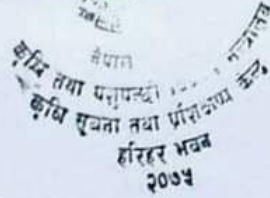 नेपाल
कृषि तथा पशुपन्छी
कृषि सूचना तथा प्रशिक्षण केन्द्र
हरिहर भवन
२०७५